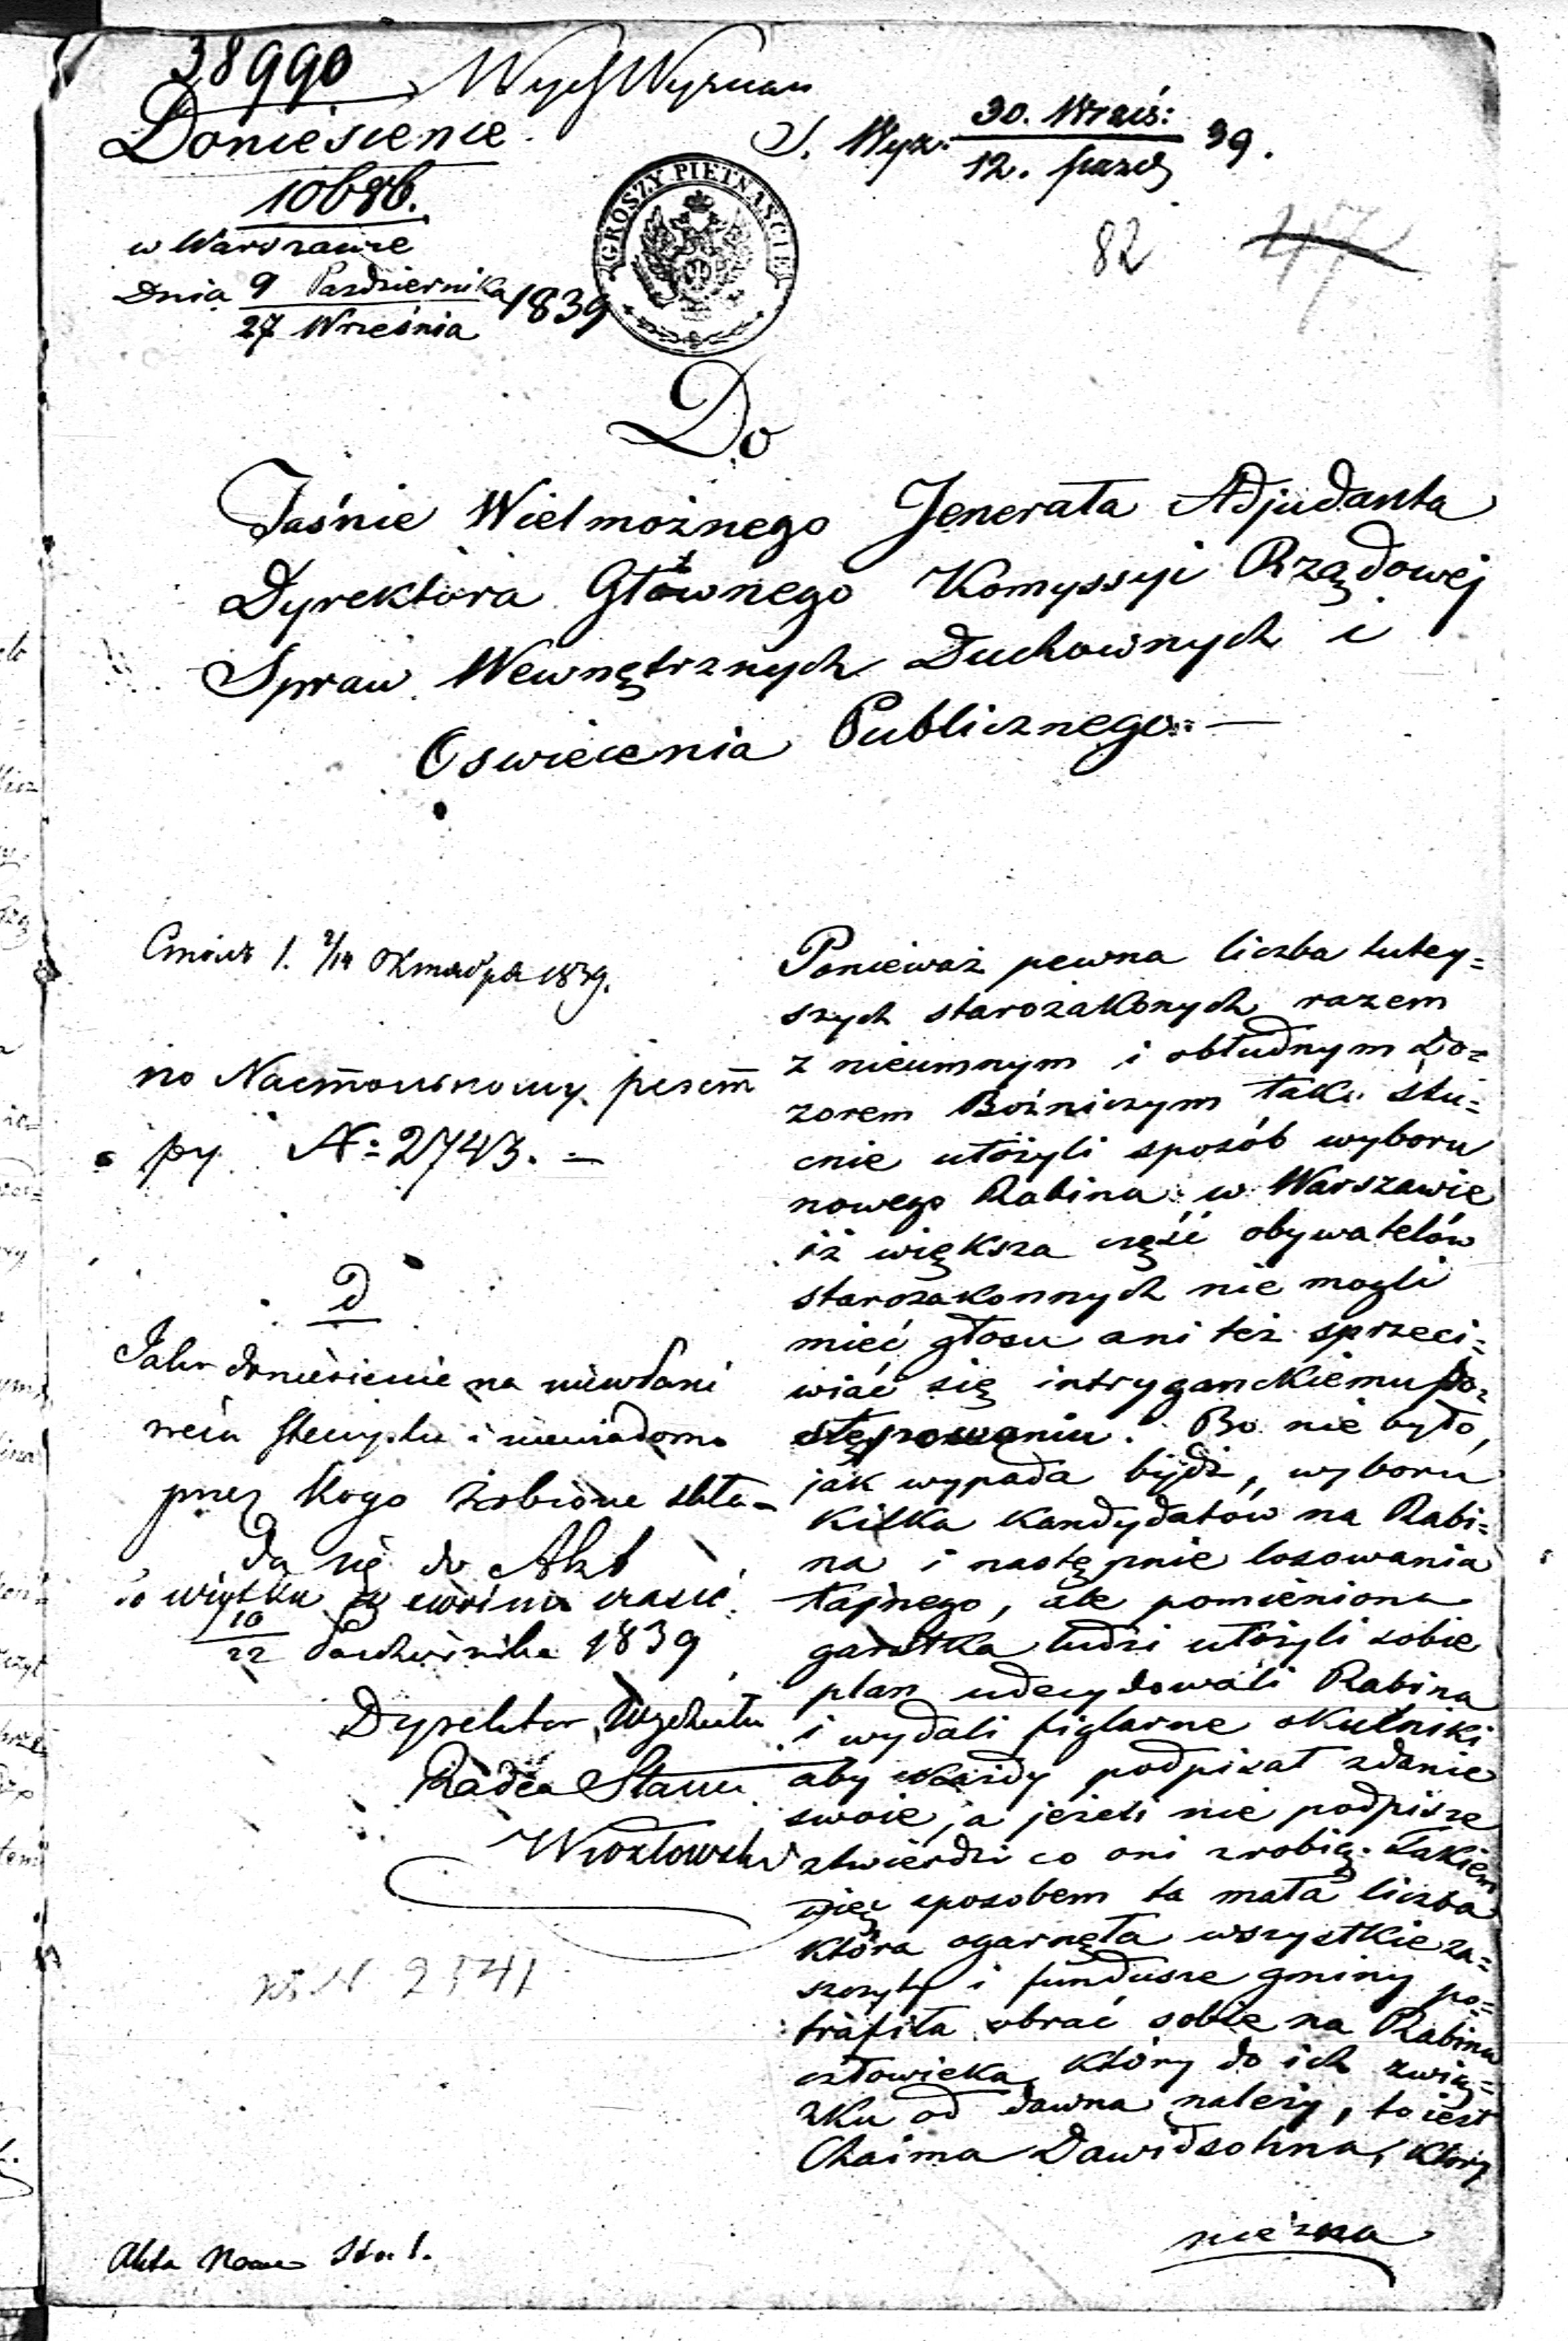 38990
Doniesienie
10686.
w Warszawie
Dnia 9 Pazdziernika 1839
27 Września
30. Wrześ:
12. 39.
82
47
GROSZY PIETNAŚCIE
Do
Jaśnie Wielmożnego Jenerała Adjudanta
Dyrektora Głównego Komyssyi Rządowej
Spraw Wewnętrznych Duchownych i
Oswiecenia Publicznego.=—
1839.
No
py № 2743. =
D
Jako doniesienie na niewłaści
wem Stemplu i niewiadomo
przez kogo zrobione skła-
da się do Akt
10
22 Pazdziernika 1839
Dyrektor Wydziału
Radca Stanu
2541
Akta
Ponieważ pewna liczba tutey=
szych starozakonych razem
z nieumnym i obłudnym Do=
zorem Bożniczym tak sztu=
cnie ułożyli sposób wyboru
nowego Rabina w Warszawie
iż większa część obywatelów
starozakonnych nie mogli
mieć głosu ani też sprzeci=
wiać się intryganckiemu po=
stępowaniu. Bo nie było,
jak wypada bydź, wyboru
kilka kandydatów na Rabi=
na i następnie losowania
tajnego, ale pomieniona
garstka ludzi ułożyli sobie
plan udecydowali Rabina
i wydali figlarne okulniki
aby każdy podpisał zdanie
swoie, a jeżeli nie podpisze
ztwierdzi co oni zrobią. Takiem
więc sposobem ta mała liczba
która ogarnęła wszystkie za=
szczyty i fundusze gminy po=
trafiła obrać sobie na Rabina
człowieka, który do ich zwią=
zku od dawna należy, to iest
Chaima Dawidsohna, który
nie zna